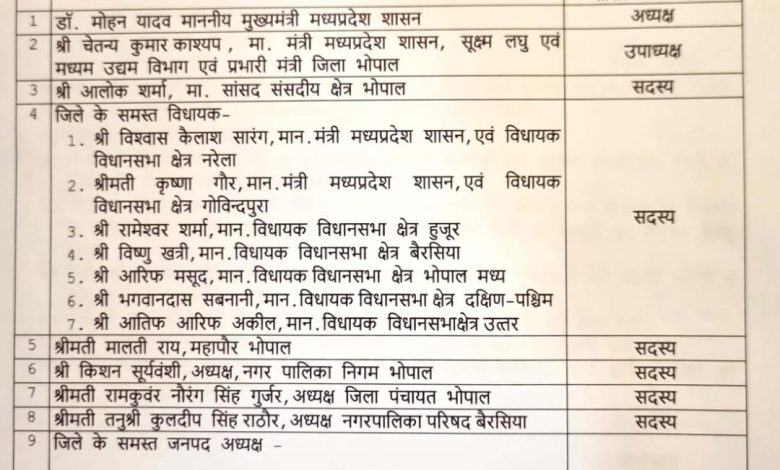 1 डॉ. मोहन यादव माननीय मुख्यमंत्री मध्यप्रदेश शासन अध्यक्ष
2 श्री चेतन्य कुमार काश्यप , मा. मंत्री मध्यप्रदेश शासन, सूक्ष्म लघु एवं
मध्यम उद्यम विभाग एवं प्रभारी मंत्री जिला भोपाल उपाध्यक्ष
3 श्री आलोक शर्मा, मा. सांसद संसदीय क्षेत्र भोपाल सदस्य
4 जिले के समस्त विधायक-
1. श्री विश्वास कैलाश सारंग,मान.मंत्री मध्यप्रदेश शासन,एवं विधायक
विधानसभा क्षेत्र नरेला
2. श्रीमती कृष्णा गौर,मान.मंत्री मध्यप्रदेश शासन,एवं विधायक
विधानसभा क्षेत्र गोविन्दपुरा
सदस्य
3. श्री रामेश्वर शर्मा,मान.विधायक विधानसभा क्षेत्र हुजूर
4. श्री विष्णु खत्री,मान.विधायक विधानसभा क्षेत्र बैरसिया
5. श्री आरिफ मसूद,मान.विधायक विधानसभा क्षेत्र भोपाल मध्य
6. श्री भगवानदास सबनानी,मान.विधायक विधानसभा क्षेत्र दक्षिण-पश्चिम
7. श्री आतिफ आरिफ अकील,मान.विधायक विधानसभाक्षेत्र उत्तर
5 श्रीमती मालती राय,महापौर भोपाल सदस्य
6 श्री किशन सूर्यवंशी,अध्यक्ष,नगर पालिका निगम भोपाल सदस्य
7 श्रीमती रामकुवंर नौरंग सिंह गुर्जर,अध्यक्ष जिला पंचायत भोपाल सदस्य
8 श्रीमती तनुश्री कुलदीप सिंह राठौर,अध्यक्ष नगरपालिका परिषद बैरसिया सदस्य
9 जिले के समस्त जनपद अध्यक्ष -